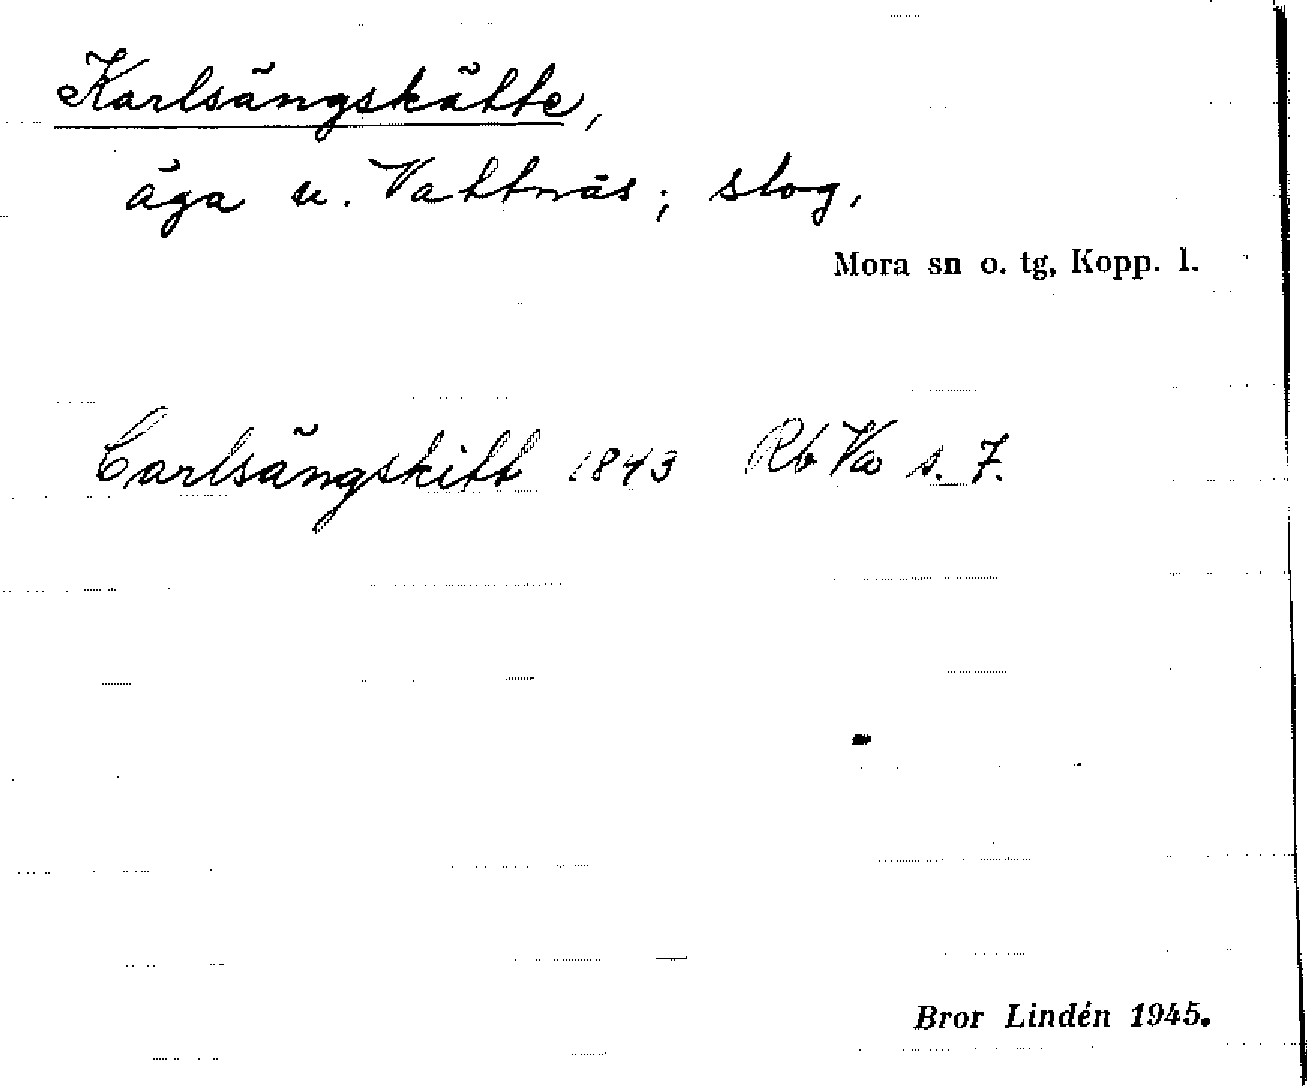 Karlsängskätte,
äga u. Vattnäs; slog,
Mora sn o. tg, Kopp. l.
Carlsängskitt 1843 Rb Va s. 7.
Bror Lindén 1945.